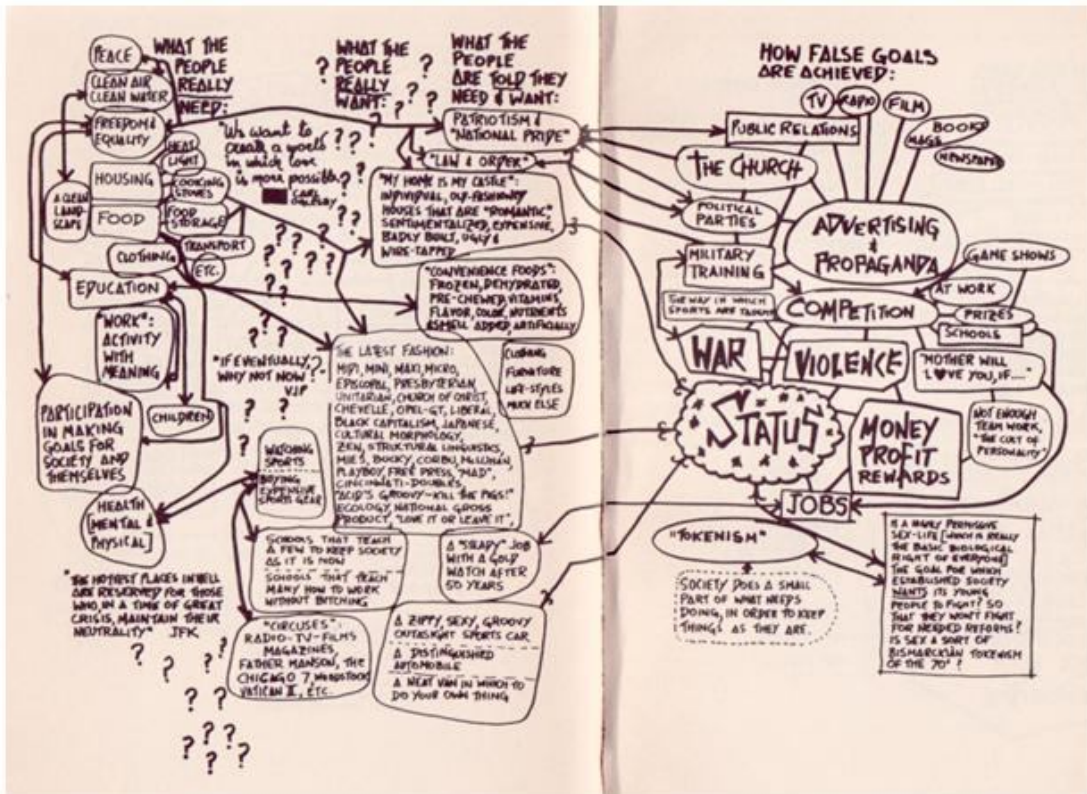 WHAT THE
PEOPLE
REALLY
NEED:
PEACE
CLEAN AIR
CLEAN WATER
FREEDOM &
EQUALITY
HEAT
LIGHT
HOUSING
COOKING
STOVES
A CLEAN
LAND-
SCAPE
FOOD
FOOD
STORAGE
TRANSPORT
CLOTHING
ETC.
EDUCATION
"WORK":
ACTIVITY
WITH
MEANING
CHILDREN
PARTICIPATION
IN MAKING
GOALS FOR
SOCIETY AND
THEMSELVES
HEALTH
[MENTAL &
PHYSICAL]
"THE HOTTEST PLACES IN HELL
ARE RESERVED FOR THOSE
WHO, IN A TIME OF GREAT
CRISIS, MAINTAIN THEIR
NEUTRALITY" JFK
WHAT THE
PEOPLE
REALLY
WANT:
"We want to
create a world
in which love
is more possible."
CARL
OGLESBY
"IF EVENTUALLY,
WHY NOT NOW?"
VJP
WHAT THE
PEOPLE
ARE TOLD THEY
NEED & WANT:
PATRIOTISM &
"NATIONAL PRIDE"
"LAW & ORDER"
"MY HOME IS MY CASTLE":
INDIVIDUAL, OLD-FASHIONED
HOUSES THAT ARE "ROMANTIC",
SENTIMENTALIZED, EXPENSIVE,
BADLY BUILT, UGLY &
WIRE-TAPPED
"CONVENIENCE FOODS":
FROZEN, DEHYDRATED,
PRE-CHEWED, VITAMINS,
FLAVOR, COLOR, NUTRIENTS
& SMELL ADDED, ARTIFICIALLY
THE LATEST FASHION:
MIDI, MINI, MAXI, MICRO,
EPISCOPAL, PRESBYTERIAN,
UNITARIAN, CHURCH OF CHRIST,
CHEVELLE, OPEL-GT, LIBERAL,
BLACK CAPITALISM, JAPANESE,
CULTURAL MORPHOLOGY,
ZEN, STRUCTURAL LINGUISTICS,
BUCKY, CORBU, McLUHAN,
PLAYBOY, FREE PRESS, "MAD",
"ACID'S GROOVY-KILL THE PIGS!"
ECOLOGY, NATIONAL GROSS
PRODUCT, "LOVE IT OR LEAVE IT",
CLOTHING
FURNITURE
LIFE-STYLES
MUCH ELSE
WATCHING
SPORTS
BUYING
EXPENSIVE
SPORTS GEAR
SCHOOLS THAT TEACH
A FEW TO KEEP SOCIETY
AS IT IS NOW
SCHOOLS THAT TEACH
MANY HOW TO WORK
WITHOUT BITCHING
A "STEADY" JOB
WITH A GOLD
WATCH AFTER
50 YEARS
"CIRCUSES":
RADIO-TV-FILMS
MAGAZINES,
FATHER MANSON, THE
CHICAGO 7, WOODSTOCK
VATICAN II, ETC.
A ZIPPY, SEXY, GROOVY
OUTASIGHT SPORTS CAR
A DISTINGUISHED
AUTOMOBILE
A NEAT VAN IN WHICH TO
DO YOUR OWN THING
HOW FALSE GOALS
ARE ACHIEVED:
TV
RADIO
FILM
BOOKS
MAGS
NEWSPAPERS
PUBLIC RELATIONS
THE CHURCH
POLITICAL
PARTIES
ADVERTISING
&
PROPAGANDA
MILITARY
TRAINING
GAME SHOWS
THE WAY IN WHICH
SPORTS ARE TAUGHT
COMPETITION
AT WORK
PRIZES
SCHOOLS
WAR
VIOLENCE
"MOTHER WILL
L♥VE YOU, IF...."
STATUS
MONEY
PROFIT
REWARDS
NOT ENOUGH
TEAM WORK,
"THE CULT OF
PERSONALITY"
JOBS
"TOKENISM"
SOCIETY DOES A SMALL
PART OF WHAT NEEDS
DOING, IN ORDER TO KEEP
THINGS AS THEY ARE.
IS A HIGHLY PERMISSIVE
SEX-LIFE [WHICH IS REALLY
THE BASIC BIOLOGICAL
RIGHT OF EVERYONE]
THE GOAL FOR WHICH
ESTABLISHED SOCIETY
WANTS ITS YOUNG
PEOPLE TO FIGHT? SO
THAT THEY WON'T FIGHT
FOR NEEDED REFORMS?
IS SEX A SORT OF
BISMARCKIAN TOKENISM
OF THE 70'?